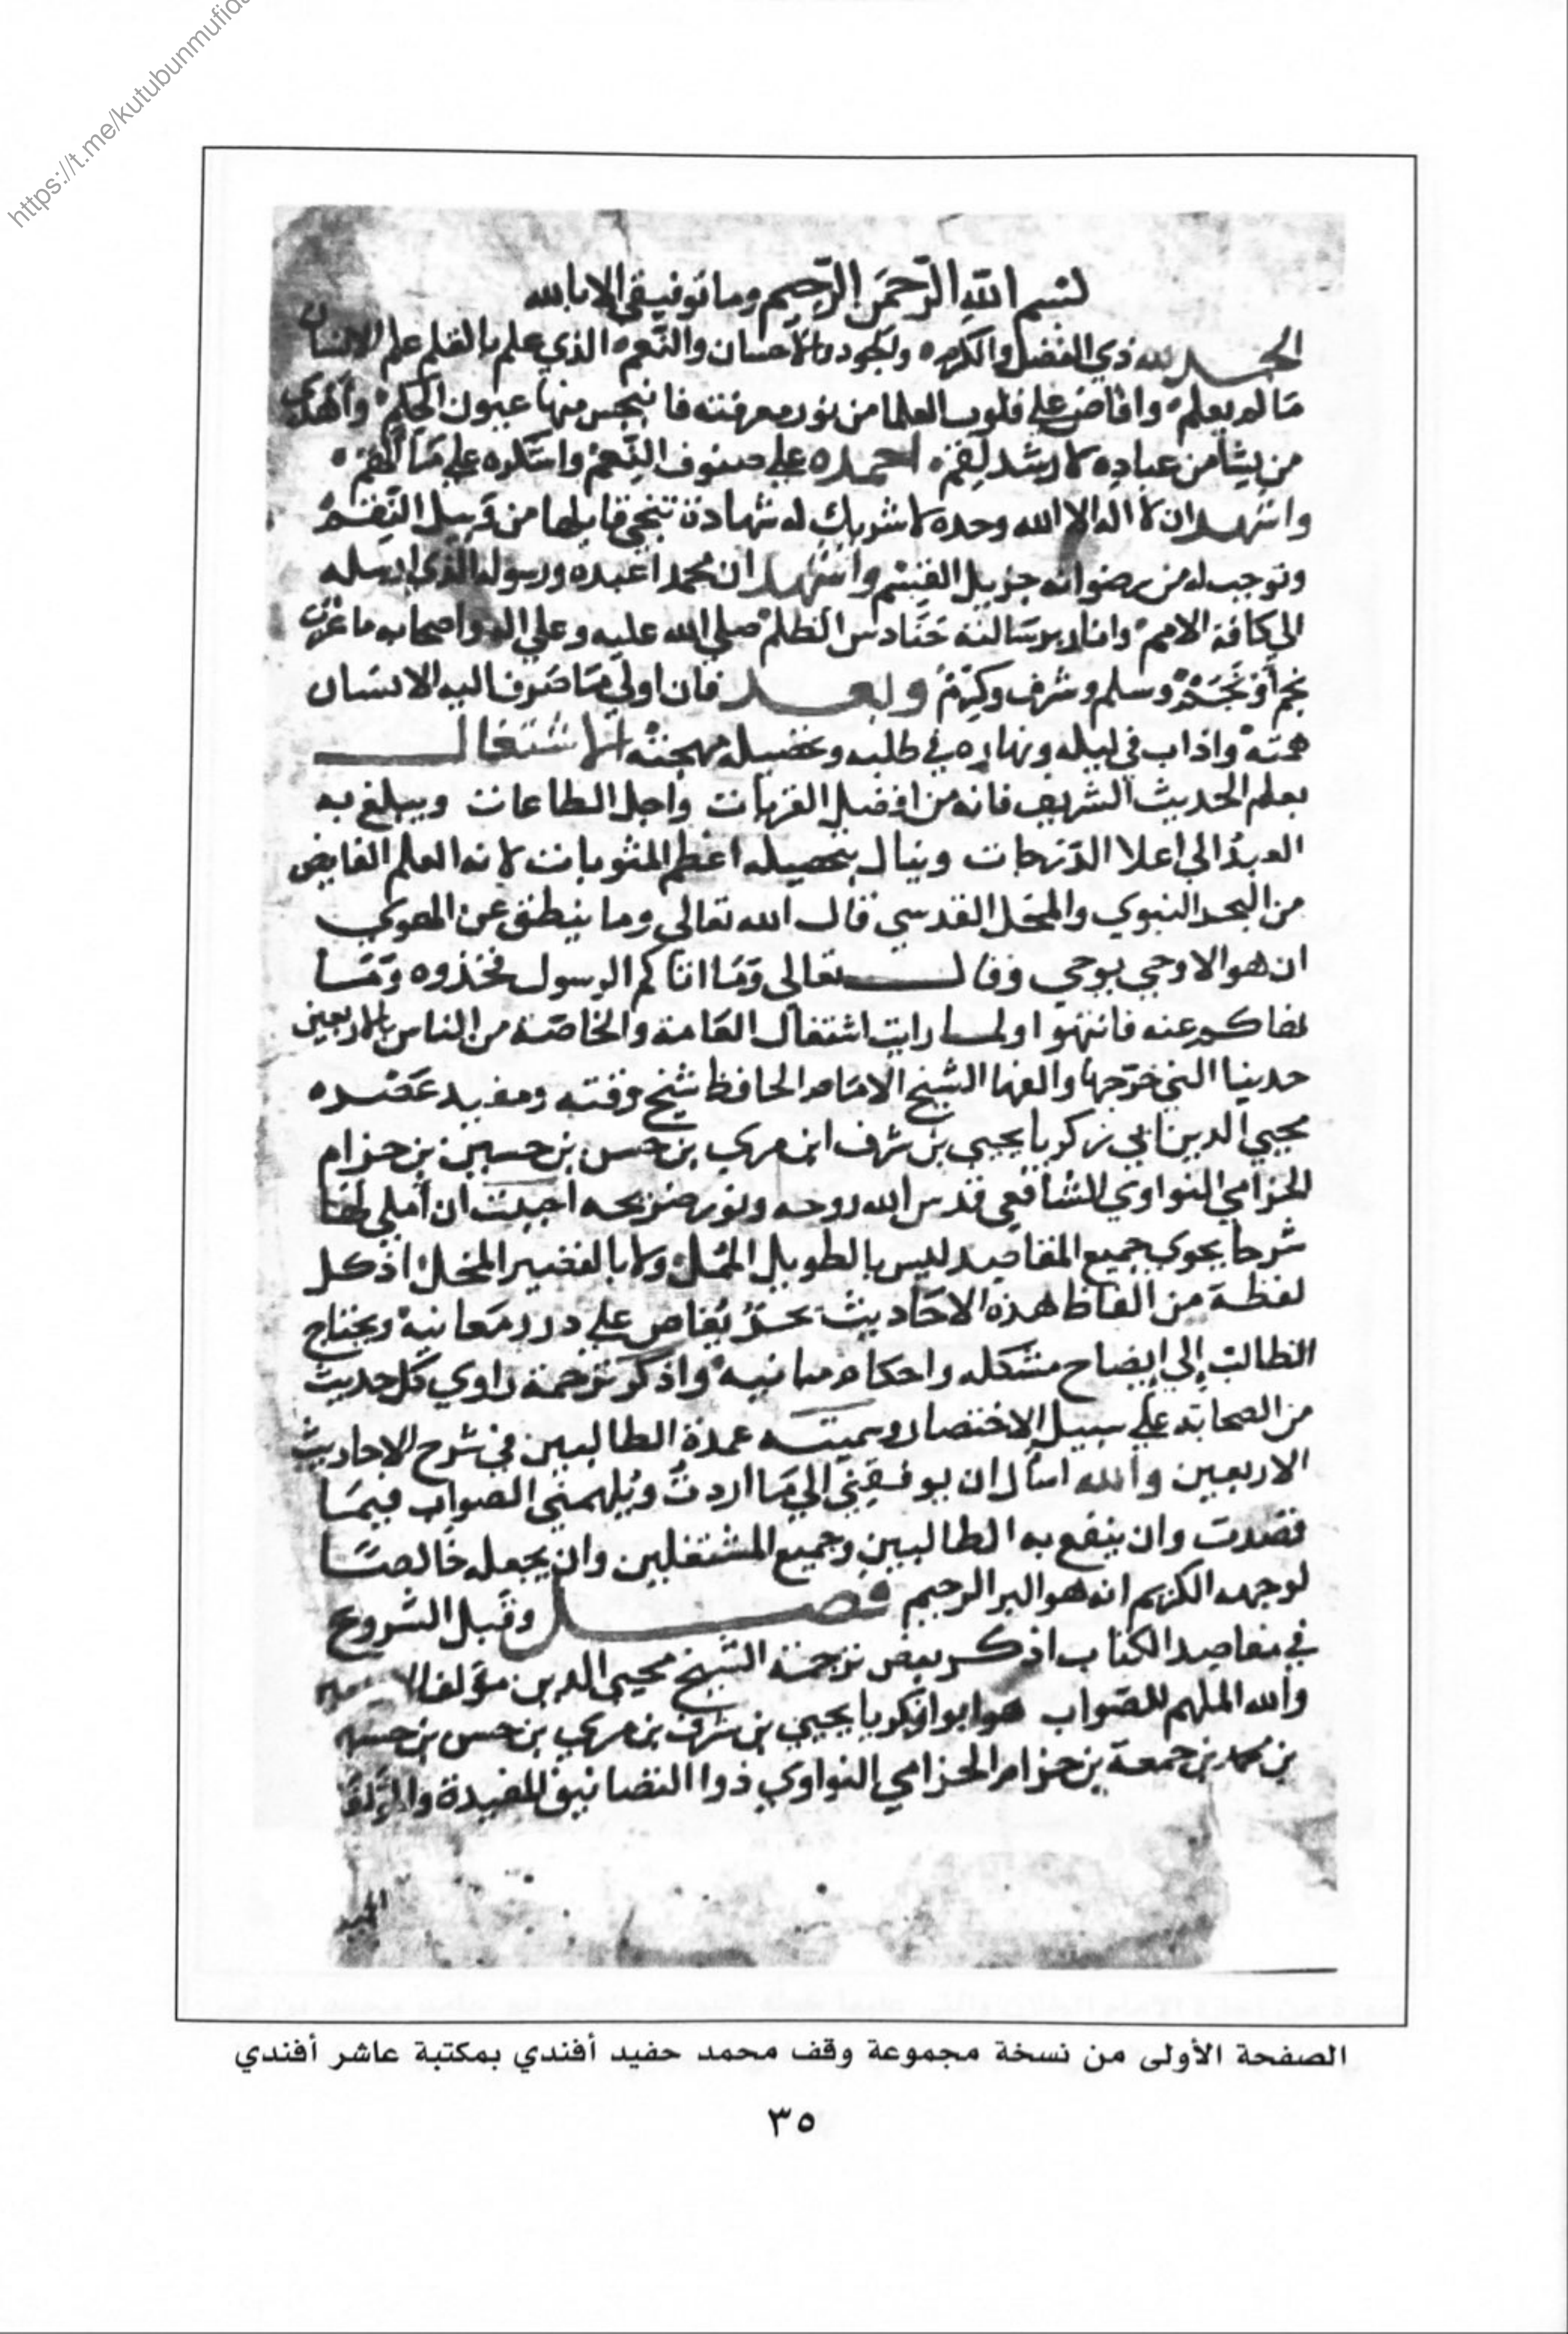 https://t.me/kutubunmufida
لبسم الله الرحمن الرحيم وما توفيقي الا بالله
الحمد لله ذي الفضل والكرم والجود والاحسان والنعم الذي علم بالقلم علم الانسان
ما لم يعلم وافاض على قلوب العلما من نور معرفته فانبجس منها عيون الحكم
من يشا من عباده لارشد لقم احمده على صنوف النعم واشكره على ما الهم
واشهد ان لا اله الا الله وحده لا شريك له شهادة تنجي قايلها من وبيل النقم
وتوجب له من رضوانه جزيل القسم واشهد ان محمدا عبده ورسوله الذي ارسله
الى كافة الامم وانار برسالته حنادس الظلم صلى الله عليه وعلى اله واصحابه ما
نجم وسلم وشرف وكرم وبعد فان اولى ما صرف اليه الانسان
همته واذاب في ليله ونهاره في طلبه وتحصيله مهجته الاشتغال
بعلم الحديث الشريف فانه من افضل القربات واجل الطاعات ويبلغ به
العبد الى اعلا الدرجات وينال بتحصيله اعظم المثوبات لانه العلم الفايض
من البحر النبوي والمحل القدسي قال الله تعالى وما ينطق عن الهوي
ان هو الا وحي يوحي وقال تعالى وما اتاكم الرسول فخذوه وما
نهاكم عنه فانتهوا ولما رايت اشتغال العامة والخاصة من الناس بالاربعين
حديثا التي خرجها والفها الشيخ الامام الحافظ شيخ وقته ومفيد عصره
محيي الدين ابي زكريا يحيي بن شرف ابن مري بن حسن بن حسين بن حزام
الحزامي النواوي الشافعي قدس الله روحه ونور ضريحه احببت ان املي لها
شرحا يحوي جميع المقاصد ليس بالطويل الممل ولا بالقصير المخل اذ كل
لفظة من الفاظ هذه الاحاديث بحر يغاص على درر معانيه ويحتاج
الطالب الى ايضاح مشكله واحكام مبانيه واذكر ترجمة راوي كل حديث
من الصحابة على سبيل الاختصار وسميته عمدة الطالبين في شرح الاحاديث
الاربعين والله اسال ان يوفقني الى ما اردت ويلهمني الصواب فيما
قصدت وان ينفع به الطالبين وجميع المشتغلين وان يجعله خالصا
لوجهه الكريم انه هو البر الرحيم فصل وقبل الشروع
في مقاصد الكتاب اذكر بعض ترجمة الشيخ محيي الدين مؤلف
والله الملهم للصواب هو ابو زكريا يحيي بن شرف بن مري بن حسن بن
بن محمد بن جمعة بن حزام الحزامي النواوي ذوا التصانيف المفيدة
الصفحة الأولى من نسخة مجموعة وقف محمد حفيد أفندي بمكتبة عاشر أفندي
٣٥